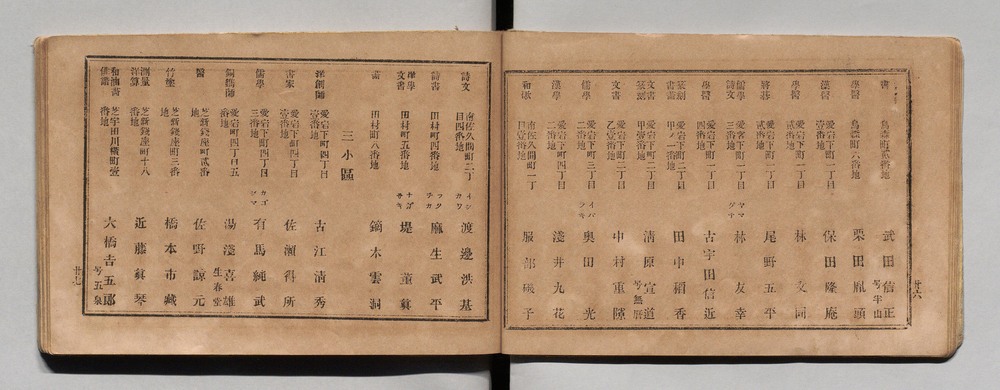 書 烏森町貳番地 武田信正 号半山
學習 烏森町六番地 栗田胤頭
漢習 愛宕下町一丁目壹番地 保田隆庵
學習 愛宕下町一丁目貳番地 林文同
將棊 愛宕下町一丁目貳番地 尾野五平
儒學詩文 愛宕下町一丁目三番地 ヤマ 林友幸
學習 愛宕下町一丁目四番地 古宇田信近
篆刻書畵 愛宕下町二丁目甲ノ一番地 田中稻香
文書篆刻 愛宕下町二丁目甲壹番地 淸原宣道 号無暦
文書 愛宕下町二丁目乙壹番地 中村重陸
儒學 愛宕下町二丁目二番地 奥田光
漢學 愛宕下町三丁目二番地 淺井九花
和歌 南佐久間町一丁目壹番地 服部磯子
廿六
詩文 南佐久間町二丁目四番地 イシカワ 渡邊洪基
詩書 田村町四番地 フタチカ 麻生武平
學文書 田村町五番地 ナガサキ 堤董眞
書 田村町八番地 鏑木雲洞
三小區
洋劍師 愛宕下町四丁目壹番地 古江淸秀
書家 愛宕下町四丁目壹番地 佐瀨得所
儒學 愛宕下町四丁目三番地 カゴシマ 有馬純武
銅鐫師 愛宕町四丁目五番地 湯淺喜雄 生春堂
醫 芝新錢座町貳番地 佐野諒元
竹塗 芝新錢座町三番地 橋本市藏
測量洋算 芝新錢座町十八番地 近藤眞琴
和漁書俳諧 芝宇田川橫町壹番地 大橋吉五郎 号五泉
廿七